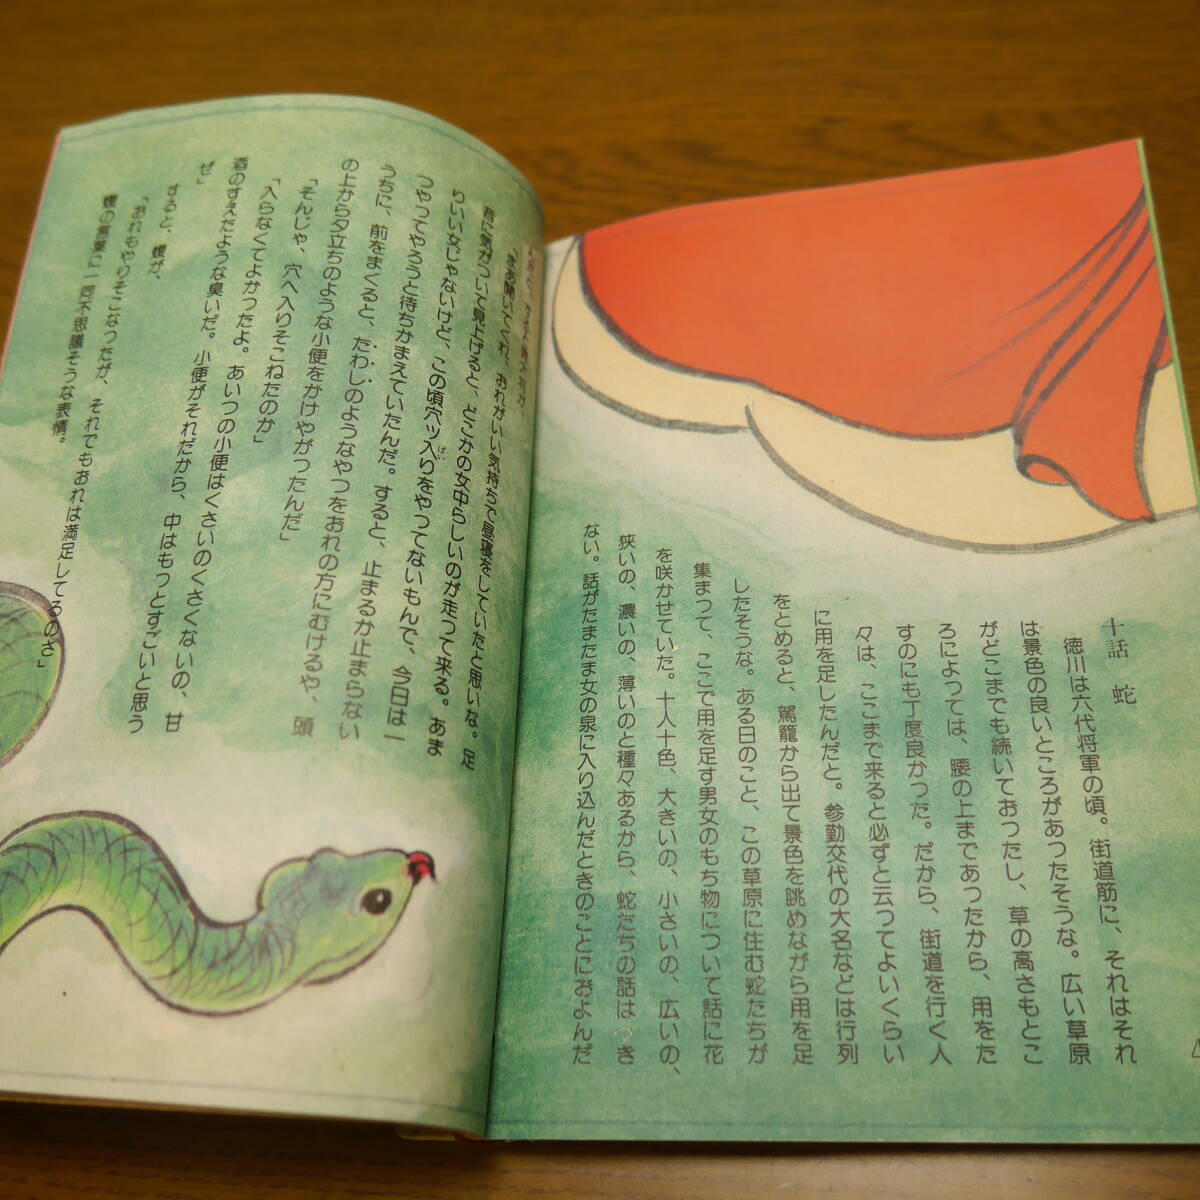 十話 蛇
徳川は六代将軍の頃。街道筋に、それはそれ
は景色の良いところがあったそうな。広い草原
がどこまでも続いておったし、草の高さもとこ
ろによっては、腰の上まであったから、用をた
すのにも丁度良かった。だから、街道を行く人
々は、ここまで来ると必ずと云ってよいくらい
に用を足したんだと。参勤交代の大名などは行列
をとめると、駕籠から出て景色を眺めながら用を足
したそうな。ある日のこと、この草原に住む蛇たちが
集まって、ここで用を足す男女のもち物について話に花
を咲かせていた。十人十色、大きいの、小さいの、広いの、
狭いの、濃いの、薄いのと種々あるから、蛇たちの話はつき
ない。話がたまたま女の泉に入り込んだときのことにおよんだ
「まあ聞いてくれ、おれがいい気持ちで昼寝をしていたと思いな。足
音に気がついて見上げると、どこかの女中らしいのが走って来る。あま
りいい女じゃないけど、この頃穴ッ入りをやってないもんで、今日は一
つやってやろうと待ちかまえていたんだ。すると、止まるか止まらない
うちに、前をまくると、たわしのようなやつをおれの方にむけるや、頭
の上から夕立ちのような小便をかけやがったんだ」
「そんじゃ、穴へ入りそこねたのか」
「入らなくてよかったよ。あいつの小便はくさいのくさくないの、甘
酒のすえたような臭いだ。小便がそれだから、中はもっとすごいと思う
ぜ」
すると、蝮が、
「おれもやりそこなったが、それでもおれは満足してるのさ」
蝮の言葉に一同不思議そうな表情。